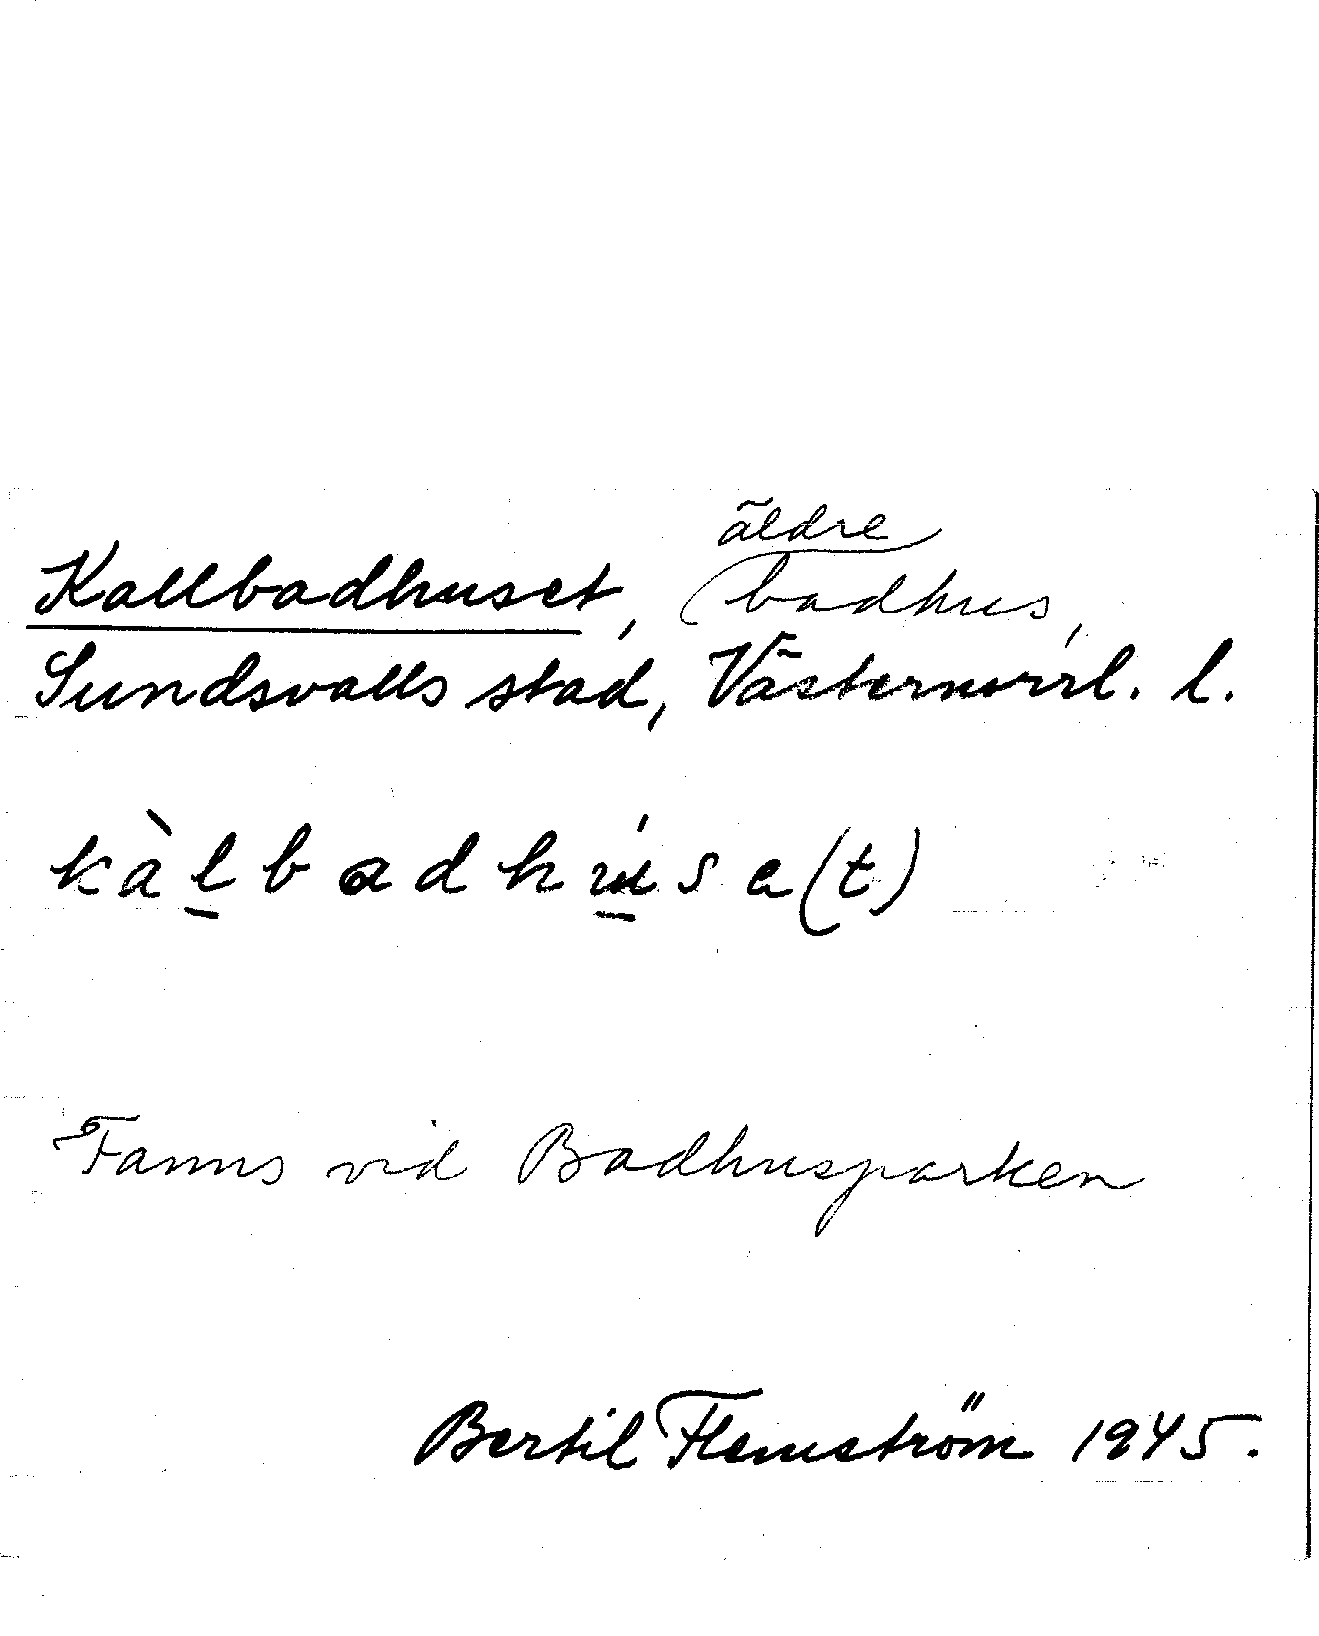 Kallbadhuset, äldre badhus,
Sundsvalls stad, Västernorrl. l.
kàl̲badhú̲sa(t)
Fanns vid Badhusparken
Bertil Flemström 1945.